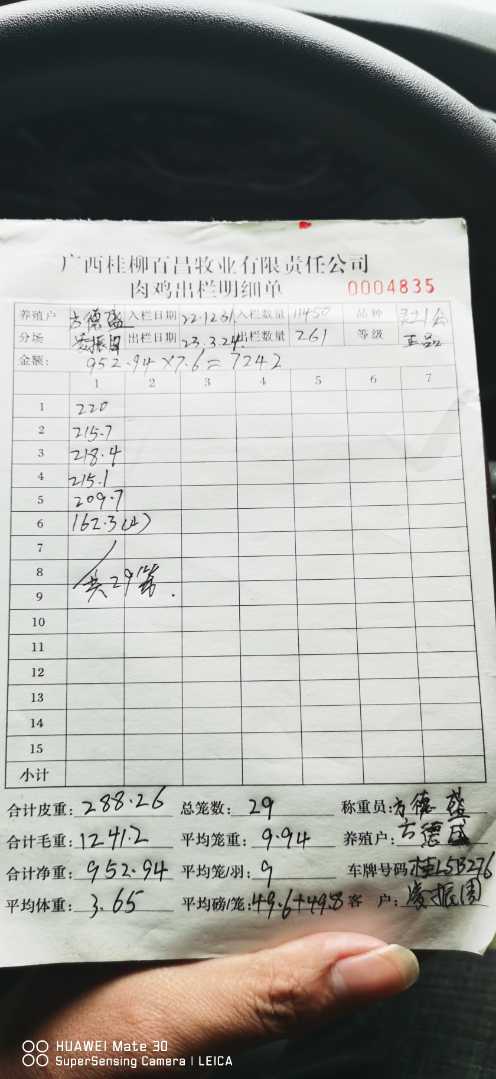 广西桂柳百昌牧业有限责任公司
肉鸡出栏明细单 0004835
养殖户 方德盛 入栏日期 22.12.61 入栏数量 11450 品种
分场 凌振周 出栏日期 23.3.24 出栏数量 261 等级 正品
金额: 952.94×7.6=7242
1 2 3 4 5 6 7
1 220
2 215.7
3 218.4
4 215.1
5 209.7
6 162.3(4)
7
8 共29笼.
9
10
11
12
13
14
15
小计
合计皮重: 288.26 总笼数: 29 称重员: 方德盛
合计毛重: 1241.2 平均笼重: 9.94 养殖户: 方德盛
合计净重: 952.94 平均笼/羽: 9 车牌号码 桂L5B276
平均体重: 3.65 平均磅/笼: 49.6+49.8 客户: 凌振周
HUAWEI Mate 30
SuperSensing Camera | LEICA